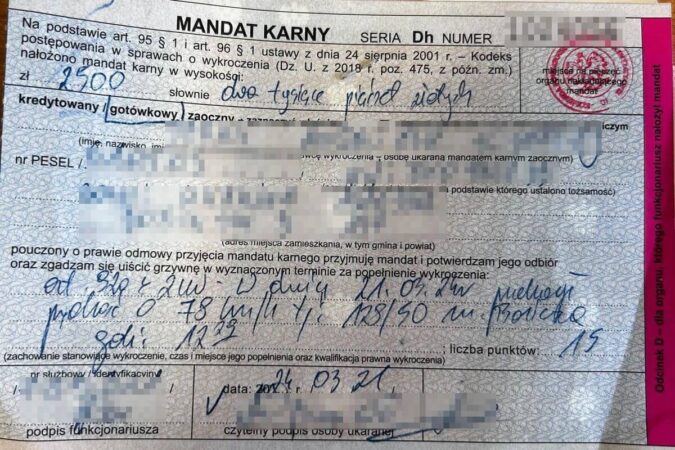 MANDAT KARNY SERIA Dh NUMER
Na podstawie art. 95 § 1 i art. 96 § 1 ustawy z dnia 24 sierpnia 2001 r. – Kodeks
postępowania w sprawach o wykroczenia (Dz. U. z 2018 r. poz. 475, z późn. zm.)
nałożono mandat karny w wysokości:
zł 2500 słownie dwa tysiące pięćset złotych
miejsce na pieczęć
organu nakładającego
mandat
kredytowany / gotówkowy / zaoczny
(imię, nazwisko,
wykroczenia – osobę ukaraną mandatem karnym zaocznym)
nr PESEL /
podstawie którego ustalono tożsamość)
(adres miejsca zamieszkania, w tym gmina i powiat)
pouczony o prawie odmowy przyjęcia mandatu karnego przyjmuję mandat i potwierdzam jego odbiór
oraz zgadzam się uiścić grzywnę w wyznaczonym terminie za popełnienie wykroczenia:
W dniu 21.03.24r
o 78 km/h tj. 128/50 m.
godz. 12
(zachowanie stanowiące wykroczenie, czas i miejsce jego popełnienia oraz kwalifikacja prawna wykroczenia)
liczba punktów: 15
nr służbowy / identyfikacyjny
data: 2024 r 03 21.
podpis funkcjonariusza
czytelny podpis osoby ukaranej
Odcinek D – dla organu, którego funkcjonariusz nałożył mandat